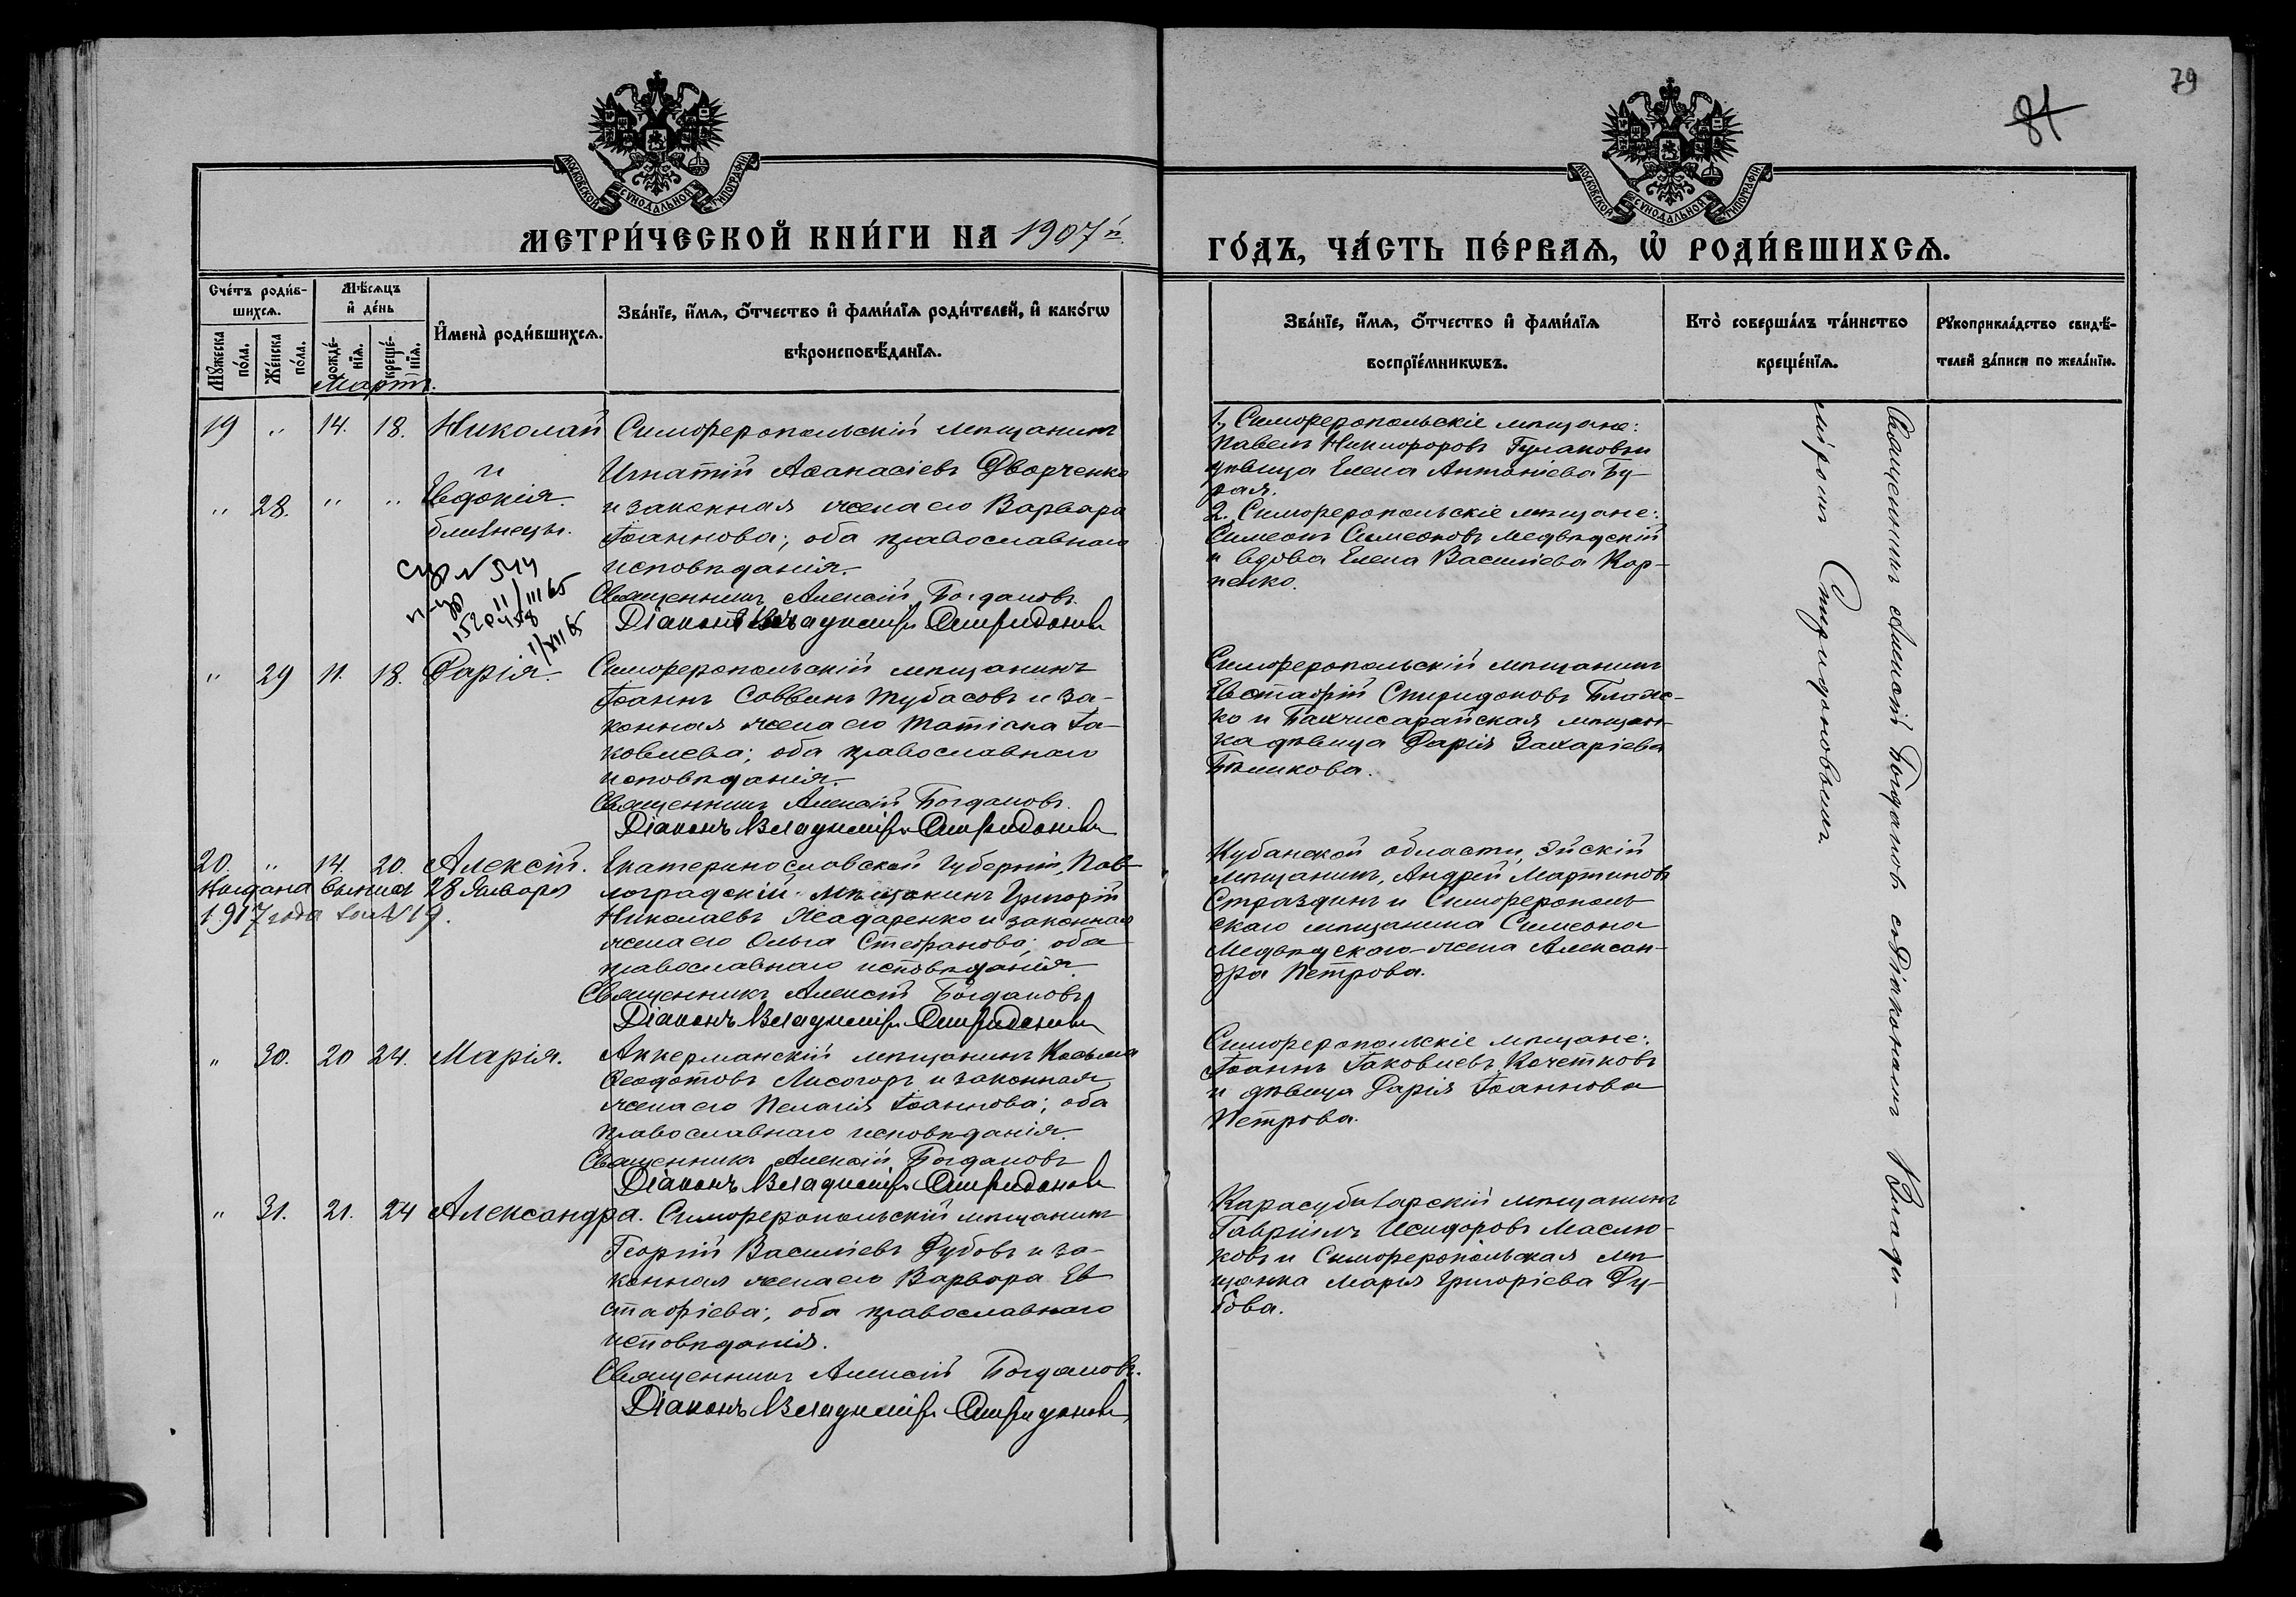 79
81
МОСКОВСКОЙ СѴНОДАЛЬНОЙ ТИПОГРАФІИ
МОСКОВСКОЙ СѴНОДАЛЬНОЙ ТИПОГРАФІИ
МЕТРИ́ЧЕСКОЙ КНИ́ГИ НА 1907й
ГО́ДЪ, ЧА́СТЬ ПЕ́РВАѦ, Ѡ҆ РОДИ́ВШИХСѦ.
Сче́тъ роди́в-
шихсѧ.
Мꙋ́жеска по́ла.
Же́нска по́ла.
Мѣ́сѧцъ
и҆ де́нь
рожде́-
нїѧ.
креще́-
нїѧ.
И҆мена̀ роди́вшихсѧ.
Зва́нїе, и҆́мѧ, ѻ҆́тчество и҆ фами́лїѧ роди́телей, и҆ како́гѡ
вѣроисповѣ́данїѧ.
Зва́нїе, и҆́мѧ, ѻ҆́тчество и҆ фами́лїѧ
воспрїе́мникѡвъ.
Кто̀ соверша́лъ та́инство
креще́нїѧ.
Рꙋкоприкла́дство свидѣ́-
телей за́писи по жела́нїю.
Мартъ.
19 " 14. 18. Николай
и
" 28. " " Евдокія
близнецы.
Симферопольскій мѣщанинъ
Игнатій Аѳанасіевъ Дворченко
и законная жена его Варвара
Іоаннова; оба православнаго
исповѣданія.
Священникъ Алексій Богдановъ.
Діаконъ Владиміръ Спиридоновъ
1., Симферопольскіе мѣщане:
Павелъ Никифоровъ
дѣвица Елена Антоніева Бу-
рая.
2. Симферопольскіе мѣщане:
Симеонъ Симеоновъ Медвѣдскій
и вдова Елена Василіева Кор-
пенко.
Священникъ Алексій Богдановъ съ Діакономъ Влади-
міромъ Спиридоновымъ.
N 544
11/III 65
1/XII 65
" 29 11. 18. Дарія.
Симферопольскій мѣщанинъ
Іоаннъ Саввинъ Тубасовъ и за-
конная жена его Татіана Іа-
ковлева; оба православнаго
исповѣданія.
Священникъ Алексій Богдановъ.
Діаконъ Владиміръ Спиридоновъ
Симферопольскій мѣщанинъ
Евстафій Спиридоновъ Блаже-
ко и Бахчисарайская мѣщан-
ка дѣвица Дарія Захаріева
Бѣликова.
20. " 14. 20. Алексій.
Выдана выпись 28 Января
1917 года за N 19.
Екатеринославской губерніи, Пав-
лоградскій мѣщанинъ Григорій
Николаевъ и законная
жена его Ольга Стефанова; оба
православнаго исповѣданія
Священникъ Алексій Богдановъ
Діаконъ Владиміръ Спиридоновъ
Кубанской области, Эйскій
мѣщанинъ, Андрей Мартиновъ
Страздинъ и Симферополь-
скаго мѣщанина Симеона
Медвѣдскаго жена Алексан-
дра Петрова.
" 30. 20 24. Марія.
Аккерманскій мѣщанинъ Косьма
Ѳеодотовъ Лисогоръ и законная
жена его Пелагія Іоаннова; оба
православнаго исповѣданія.
Священникъ Алексій Богдановъ
Діаконъ Владиміръ Спиридоновъ
Симферопольскіе мѣщане:
Іоаннъ Іаковлевъ Кочетковъ
и дѣвица Дарія Іоаннова
Петрова.
" 31. 21. 24 Александра.
Симферопольскій мѣщанинъ
Георгій Василіевъ Дубовъ и за-
конная жена его Варвара Ев-
стафіева; оба православнаго
исповѣданія.
Священникъ Алексій Богдановъ.
Діаконъ Владиміръ Спиридоновъ
Карасубазарскій мѣщанинъ
Гавріилъ Исидоровъ Маслю-
ковъ и Симферопольская мѣ-
щанка Марія Григоріева Ду-
бова.